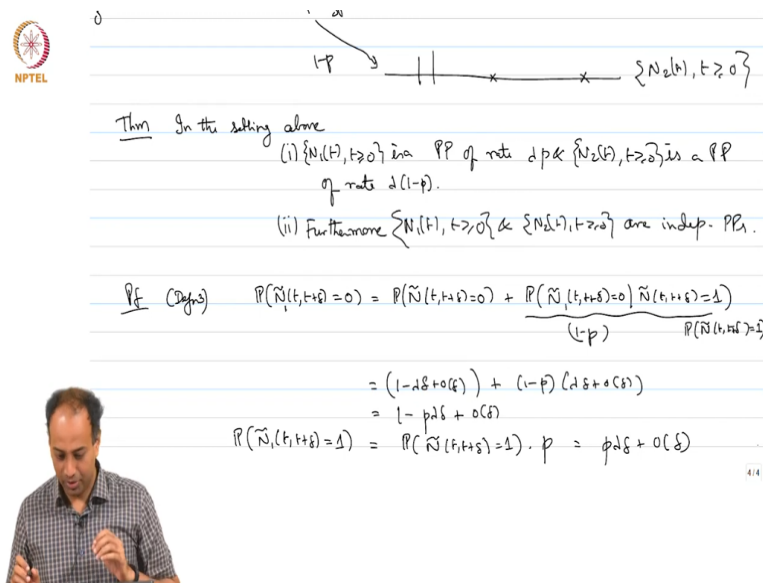 0
1-p {N₂(t), t≥0}
NPTEL
Thm In the setting above
(i) {N₁(t), t≥0} is a PP of rate λp & {N₂(t), t≥0} is a PP
of rate λ(1-p).
(ii) Furthermore {N₁(t), t≥0} & {N₂(t), t≥0} are indep. PPs.
Pf (Defn 3) P(Ñ₁(t,t+δ)=0) = P(Ñ(t,t+δ)=0) + P(Ñ₁(t,t+δ)=0| Ñ(t,t+δ)=1)
(1-p) P(Ñ(t,t+δ)=1)
= (1-λδ+o(δ)) + (1-p)(λδ+o(δ))
= 1-pλδ + o(δ)
P(Ñ₁(t,t+δ)=1) = P(Ñ(t,t+δ)=1) . p = pλδ + o(δ)
4/4